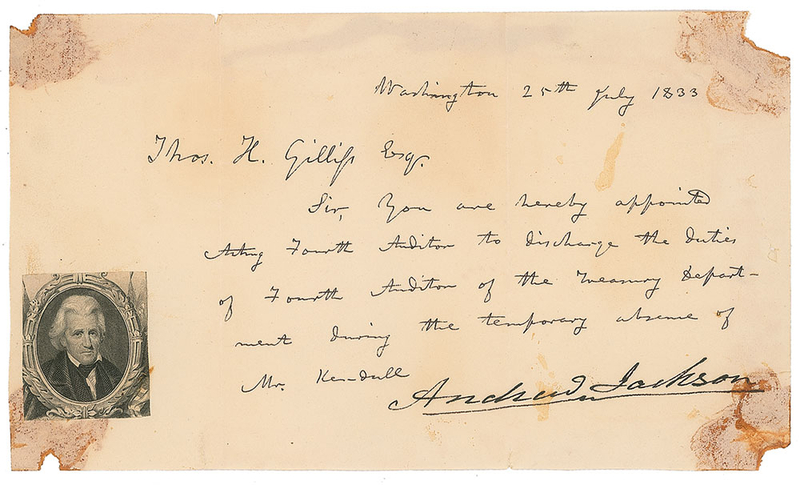 Washington 25th July 1833
Thos. H. Gilliss Esq.
Sir, You are hereby appointed
Acting Fourth Auditor to discharge the duties
of Fourth Auditor of the Treasury Depart-
ment during the temporary absence of
Mr. Kendall
Andrew Jackson